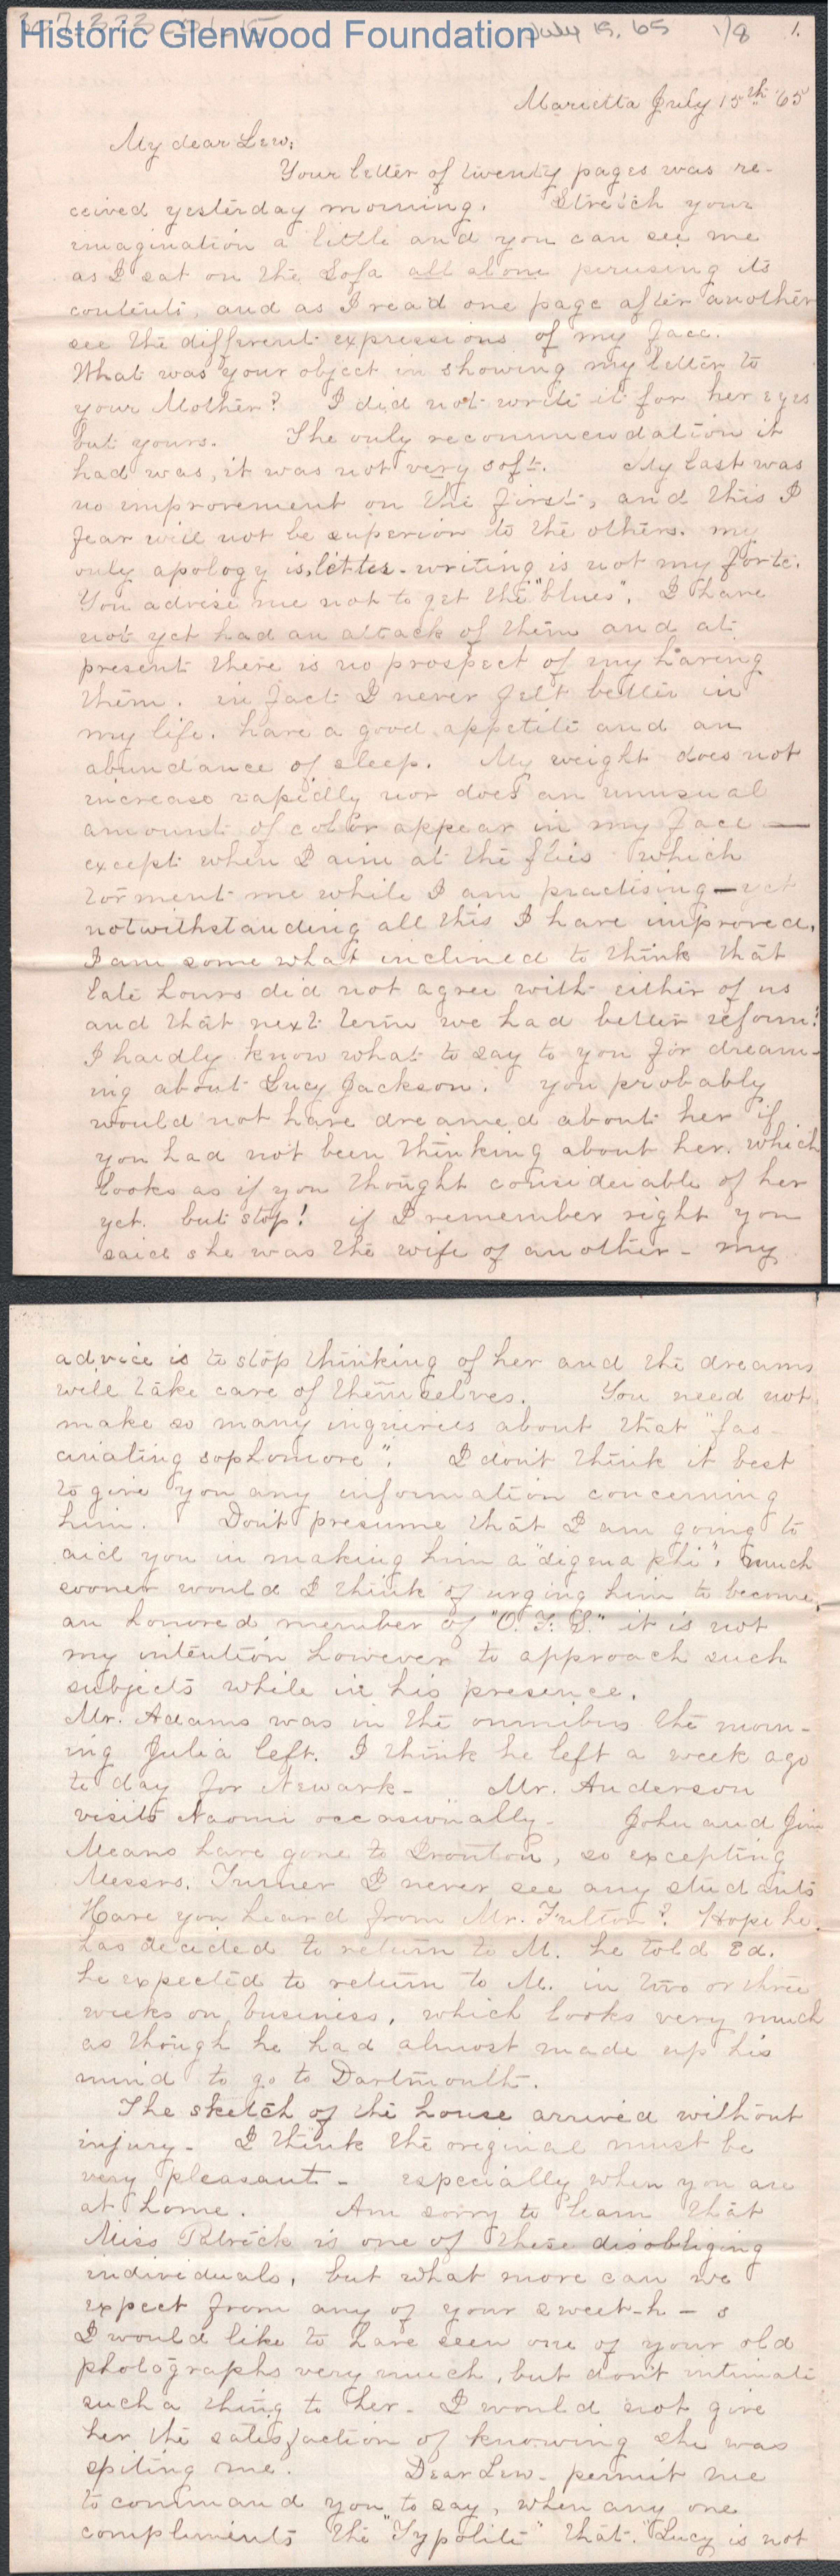 Historic Glenwood Foundation
July 15, 65 1/8 1.
Marietta July 15th '65
My dear Lew;
Your letter of twenty pages was re-
ceived yesterday morning. Stretch your
imagination a little and you can see me
as I sat on the Sofa all alone perusing its
contents, and as I read one page after another
see the different expressions of my face.
What was your object in showing my letter to
your Mother? I did not write it for her eyes
but yours. The only recommendation it
had was, it was not very soft. My last was
no improvement on the first, and this I
fear will not be superior to the others. my
only apology is, letter-writing is not my forte.
You advise me not to get the "blues". I have
not yet had an attack of them and at
present there is no prospect of my having
them. in fact I never felt better in
my life. have a good appetite and an
abundance of sleep. My weight does not
increase rapidly nor does an unusual
amount of color appear in my face —
except when I aim at the flies which
torment me while I am practising — yet
notwithstanding all this I have improved.
I am some what inclined to think that
late hours did not agree with either of us
and that next term we had better reform!
I hardly know what to say to you for dream-
ing about Lucy Jackson. you probably
would not have dreamed about her if
you had not been thinking about her. which
looks as if you thought considerable of her
yet. but stop! if I remember right you
said she was the wife of another - my
advice is to stop thinking of her and the dreams
will take care of themselves. You need not
make so many inquiries about that "fas-
cinating sophomore". I don't think it best
to give you any information concerning
him. Don't presume that I am going to
aid you in making him a "sigma phi". much
sooner would I think of urging him to become,
an honored member of "O. F. S." it is not
my intention however to approach such
subjects while in his presence.
Mr. Adams was in the omnibus the morn-
ing Julia left. I think he left a week ago
to day for Newark- Mr. Anderson
visits Naomi occasionally- John and Jim
Means have gone to Ironton, so excepting
Messrs. Turner I never see any students
Have you heard from Mr. Fulton? Hope he
has decided to return to M. he told Ed.
he expected to return to M. in two or three
weeks on business, which looks very much
as though he had almost made up his
mind to go to Dartmouth.
The sketch of the house arrived without
injury- I think the original must be
very pleasant- especially when you are
at home. Am sorry to learn that
Miss is one of these disobliging
individuals, but what more can we
expect from any of your sweet-h-s
I would like to have seen one of your old
photographs very much, but don't intimate
such a thing to her- I would not give
her the satisfaction of knowing she was
spiting me. Dear Lew- permit me
to command you to say, when any one
compliments the "Typolite" that. "Lucy is not